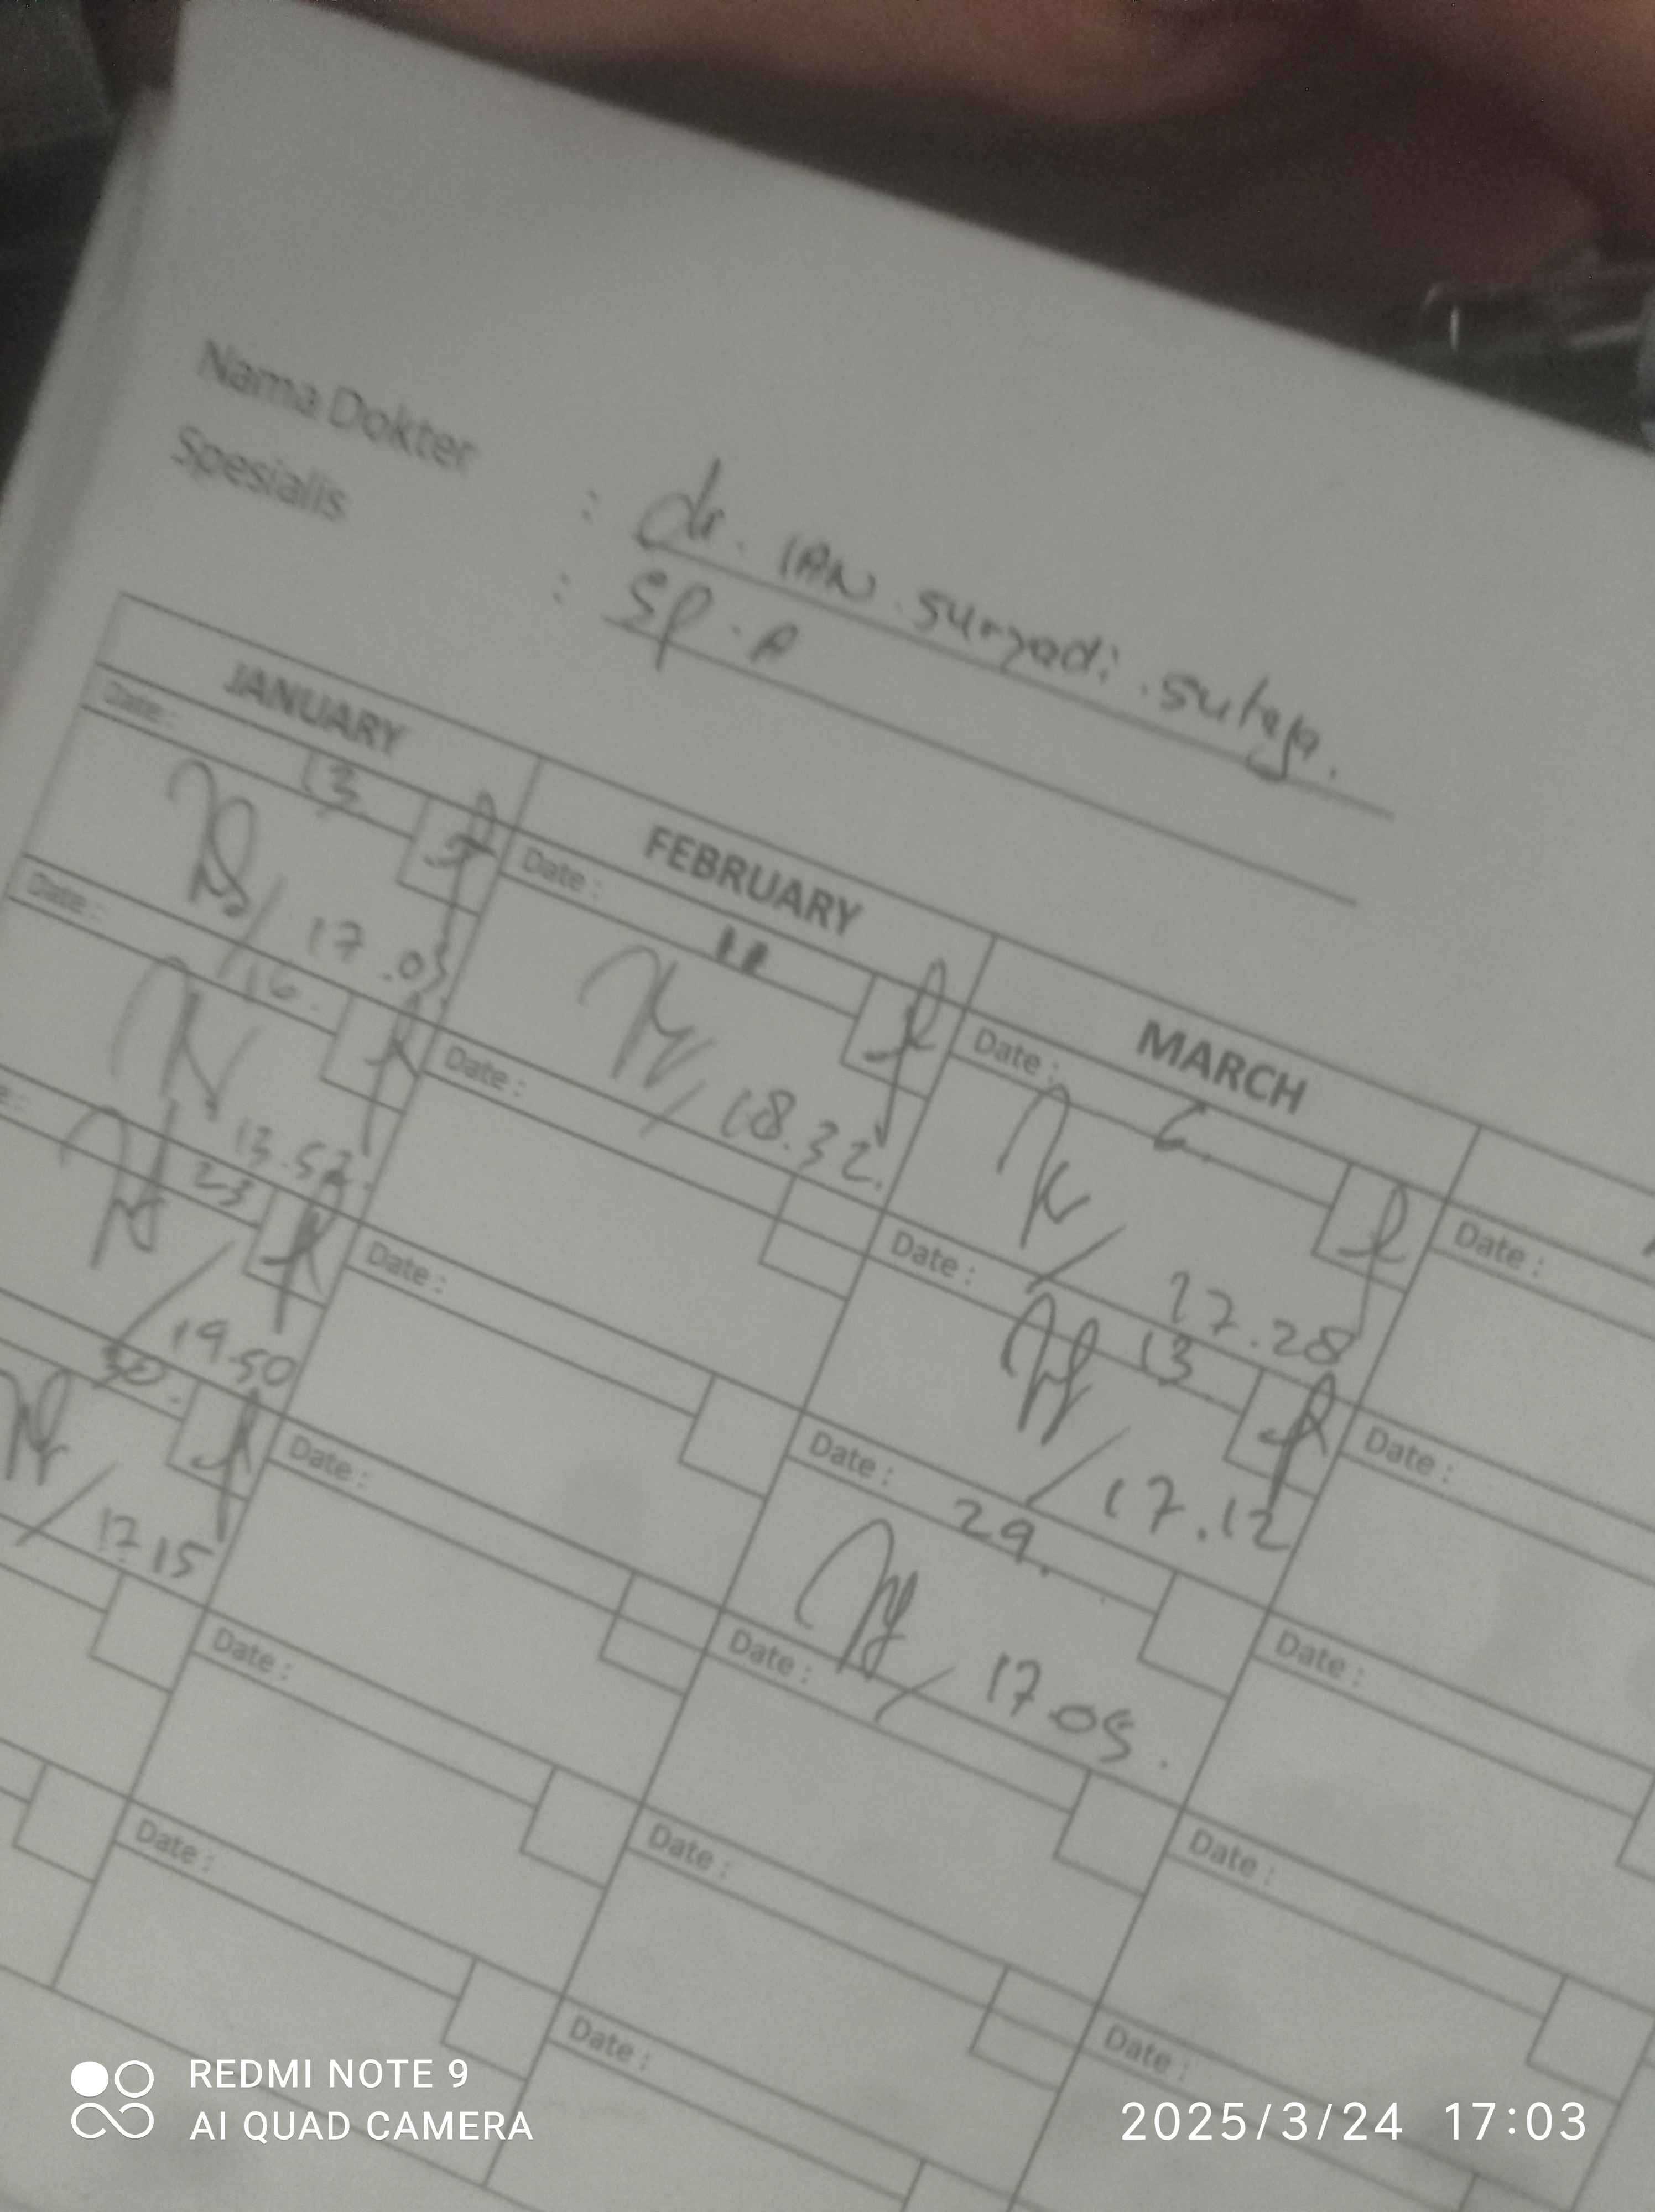 Nama Dokter : dr. IAN. Suryadi. Suteja.
Spesialis : Sp. A
JANUARY FEBRUARY MARCH
Date: 13
17.03
Date: 16.
13.52.
23
19.50
30.
17 15
Date :
18.32.
Date :
Date :
Date :
Date :
Date :
Date : 6.
17.28
Date : 13.
17.12
Date : 29.
17 05.
Date :
Date :
Date :
Date :
Date :
Date :
Date :
Date :
REDMI NOTE 9
AI QUAD CAMERA
2025/3/24 17:03